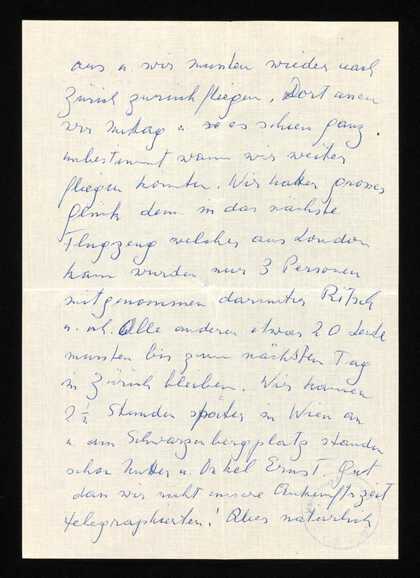 aus u wir mussten wieder nach
Zürich zurückfliegen. Dort assen
wir Mittag u. es schien ganz
unbestimmt wann wir weiter
fliegen konnten. Wir hatten grosses
Glück denn in das nächste
Flugzeug welches aus London
kam wurden nur 3 Personen
mitgenommen darunter Pitsch
u. ich. Alle anderen etwas 20 Leute
mussten bis zum nächsten Tag
in Zürich bleiben. Wir kamen
2½ Stunden später in Wien an
u am Schwarzenbergplatz standen
schon Mutter u. Onkel Ernst. Gut
dass wir nicht unsere Ankunftszeit
telegraphierten! Alles natürlich